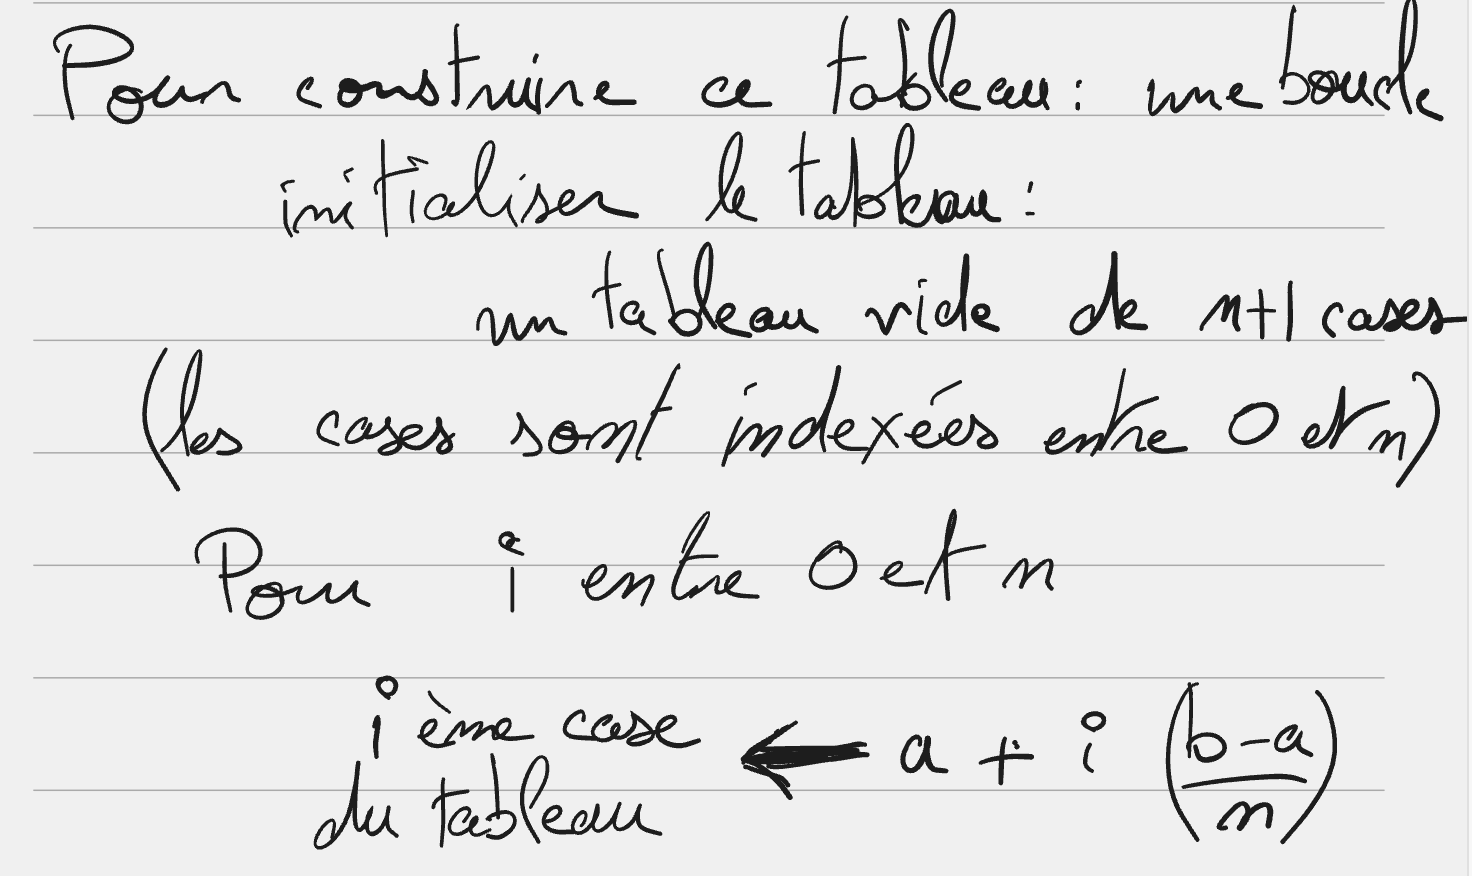 Pour construire ce tableau : une boucle
initialiser le tableau :
un tableau vide de n+1 cases
(les cases sont indexées entre 0 et n)
Pour i entre 0 et n
i ème case
du tableau ← a + i (b-a/n)